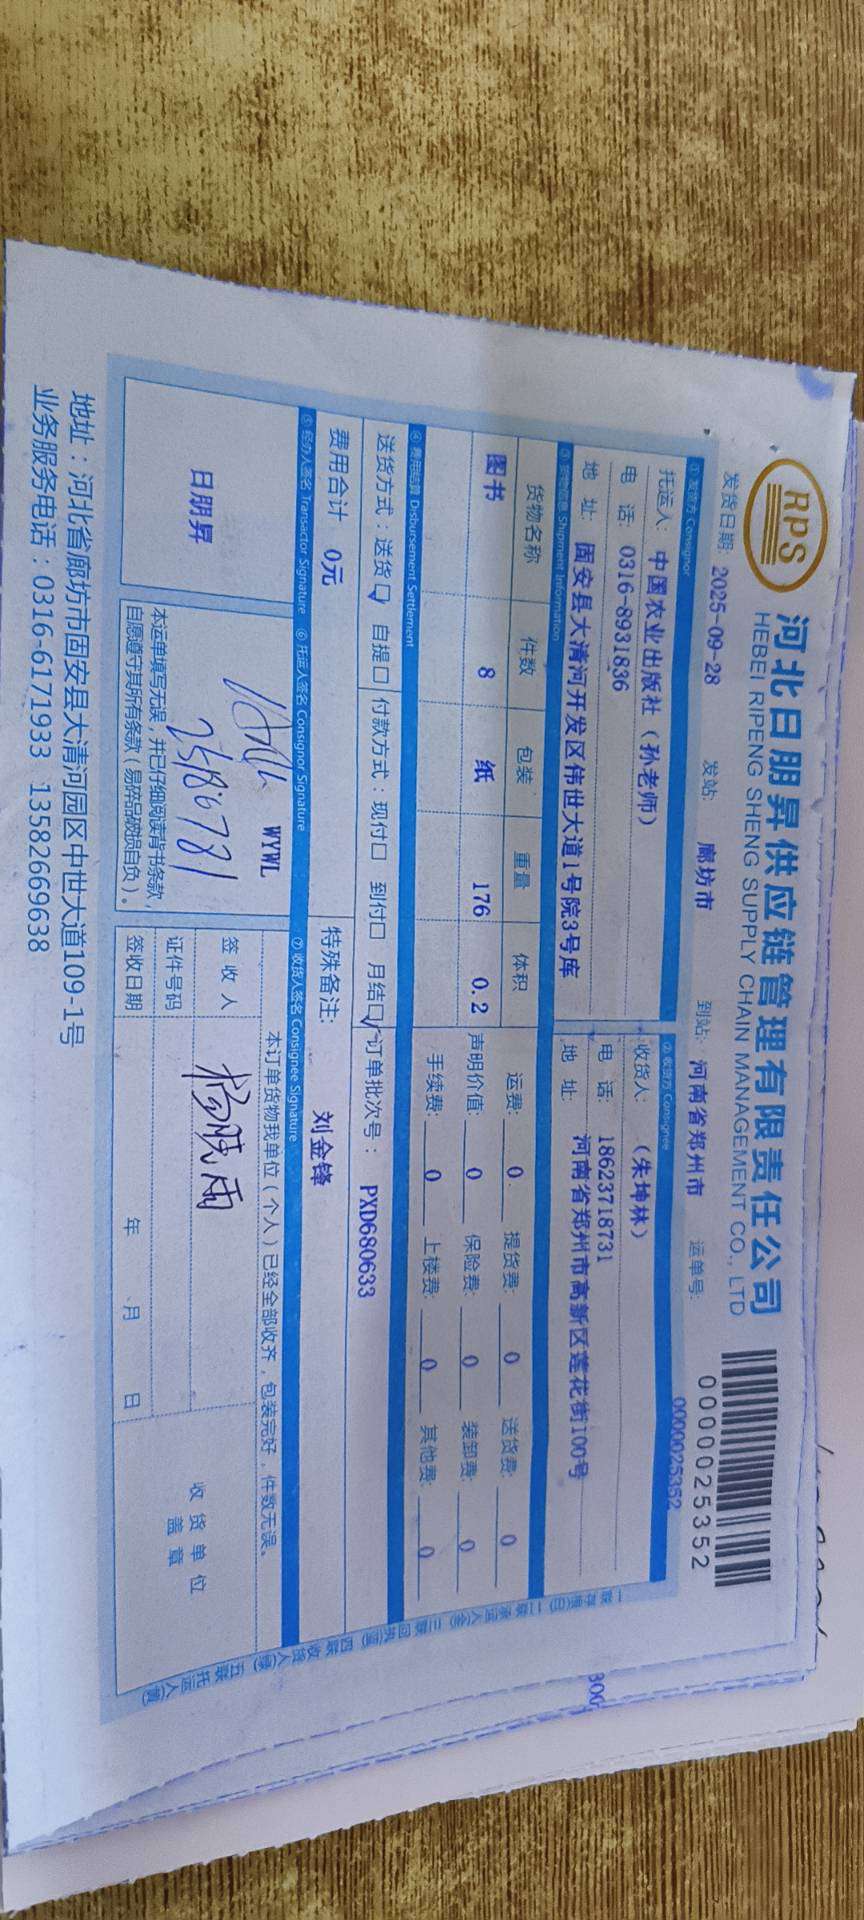 RPS
河北日朋昇供应链管理有限责任公司
HEBEI RIPENG SHENG SUPPLY CHAIN MANAGEMENT CO., LTD
0000025352
发货日期: 2025-09-28 发站: 廊坊市 到站: 河南省郑州市 运单号: 0000025352
① 发货方 Consignor ② 收货方 Consignee
托运人: 中国农业出版社（孙老师） 收货人: （朱坤林）
电 话: 0316-8931836 电 话: 18623718731
地 址: 固安县大清河开发区伟世大道1号院3号库 地 址: 河南省郑州市高新区莲花街100号
③ 货物信息 Shipment Information
货物名称 件数 包装 重量 体积 运费: 0 提货费: 0 送货费: 0
图书 8 纸 176 0.2 声明价值: 0 保险费: 0 装卸费: 0
手续费: 0 上楼费: 0 其他费: 0
④ 费用结算 Disbursement Settlement
送货方式：送货☑ 自提□ 付款方式：现付□ 到付□ 月结☑ 订单批次号： PXD680633
费用合计 0元 特殊备注: 刘金锋
⑤ 经办人签名 Transactor Signature ⑥ 托运人签名 Consignor Signature ⑦ 收货人签名 Consignee Signature
WYWL
本订单货物我单位（个人）已经全部收齐，包装完好，件数无误。
日朋昇
签 收 人 杨晓雨
证件号码
签收日期 年 月 日
收 货 单 位
盖 章
本运单填写无误，并已仔细阅读背书条款，
自愿遵守其所有条款（易碎品破损自负）。
地址：河北省廊坊市固安县大清河园区中世大道109-1号
业务服务电话：0316-6171933 13582669638